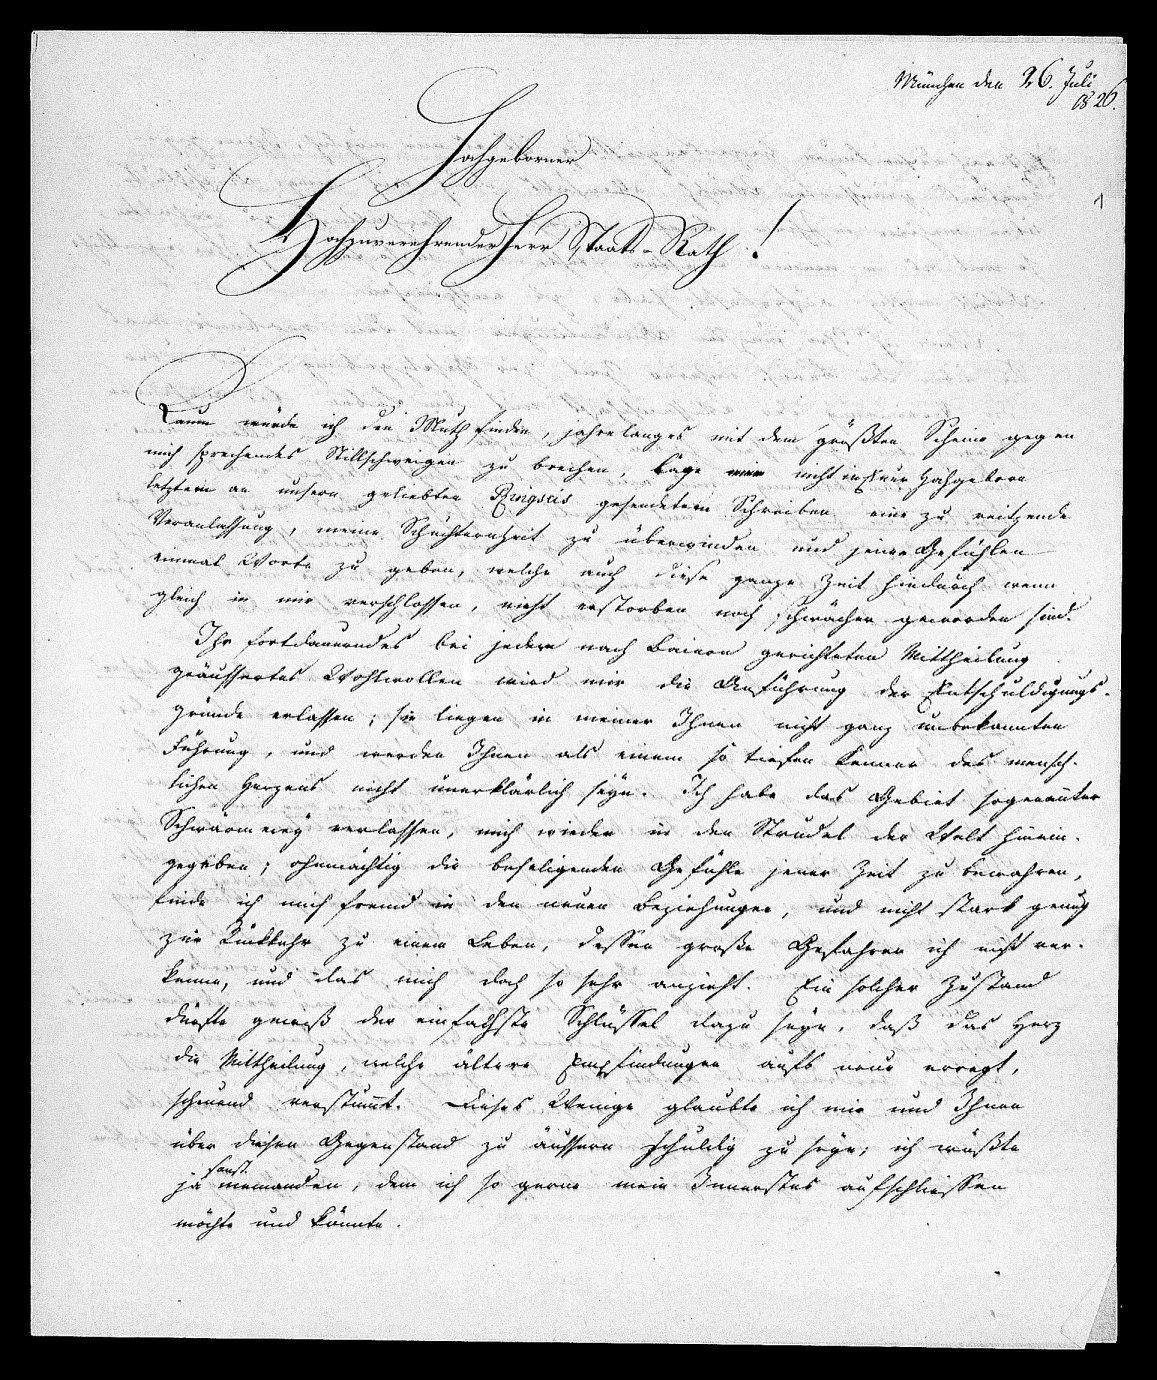 München den 26. Juli
1826.
1
Hochgeborner
Hochzuverehrender Herr Staats-Rath!
Kaum würde ich den Muth finden, jahrelanges mit dem größten Scheine gegen
mich sprechendes Stillschweigen zu brechen, läge mir nicht in Euer Hochgeborn
letztem an unsern geliebten Ringseis gesendetem Schreiben eine zu reitzende
Veranlassung, meine Schüchternheit zu überwinden und jenen Gefühlen
einmal Worte zu geben, welche auch diese ganze Zeit hindurch wenn
gleich in mir verschlossen, nicht erstorben noch schwächer geworden sind.
Ihr fortdauerndes bei jeder nach Baiern gerichteten Mittheilung
geäussertes Wohlwollen wird mir die Anführung der Entschuldigungs-
gründe erlassen; sie liegen in meiner Ihnen nicht ganz unbekannten
Führung, und werden Ihnen als einem so tiefen Kenner des mensch-
lichen Herzens nicht unerklärlich seyn. Ich habe das Gebiet sogenannter
Schwärmerey verlassen, mich wieder in den Strudel der Welt hinein-
gegeben; ohnmächtig die beseligenden Gefühle jener Zeit zu bewahren,
finde ich mich fremd in den neuen Beziehungen, und nicht stark genug
zur Rückkehr zu einem Leben, dessen große Gefahren ich nicht ver-
kenne, und das mich doch so sehr anzieht. Ein solcher Zustand
dürfte gewiß der einfachste Schlüssel dazu seyn, daß das Herz
die Mittheilung, welche ältere Empfindungen aufs neue erregt,
scheuend verstummt. Dieses Wenige glaubte ich mir und Ihnen
über diesen Gegenstand zu äussern schuldig zu seyn; ich wüßte
ja sonst niemanden, dem ich so gerne mein Innerstes aufschliessen
möchte und könnte.